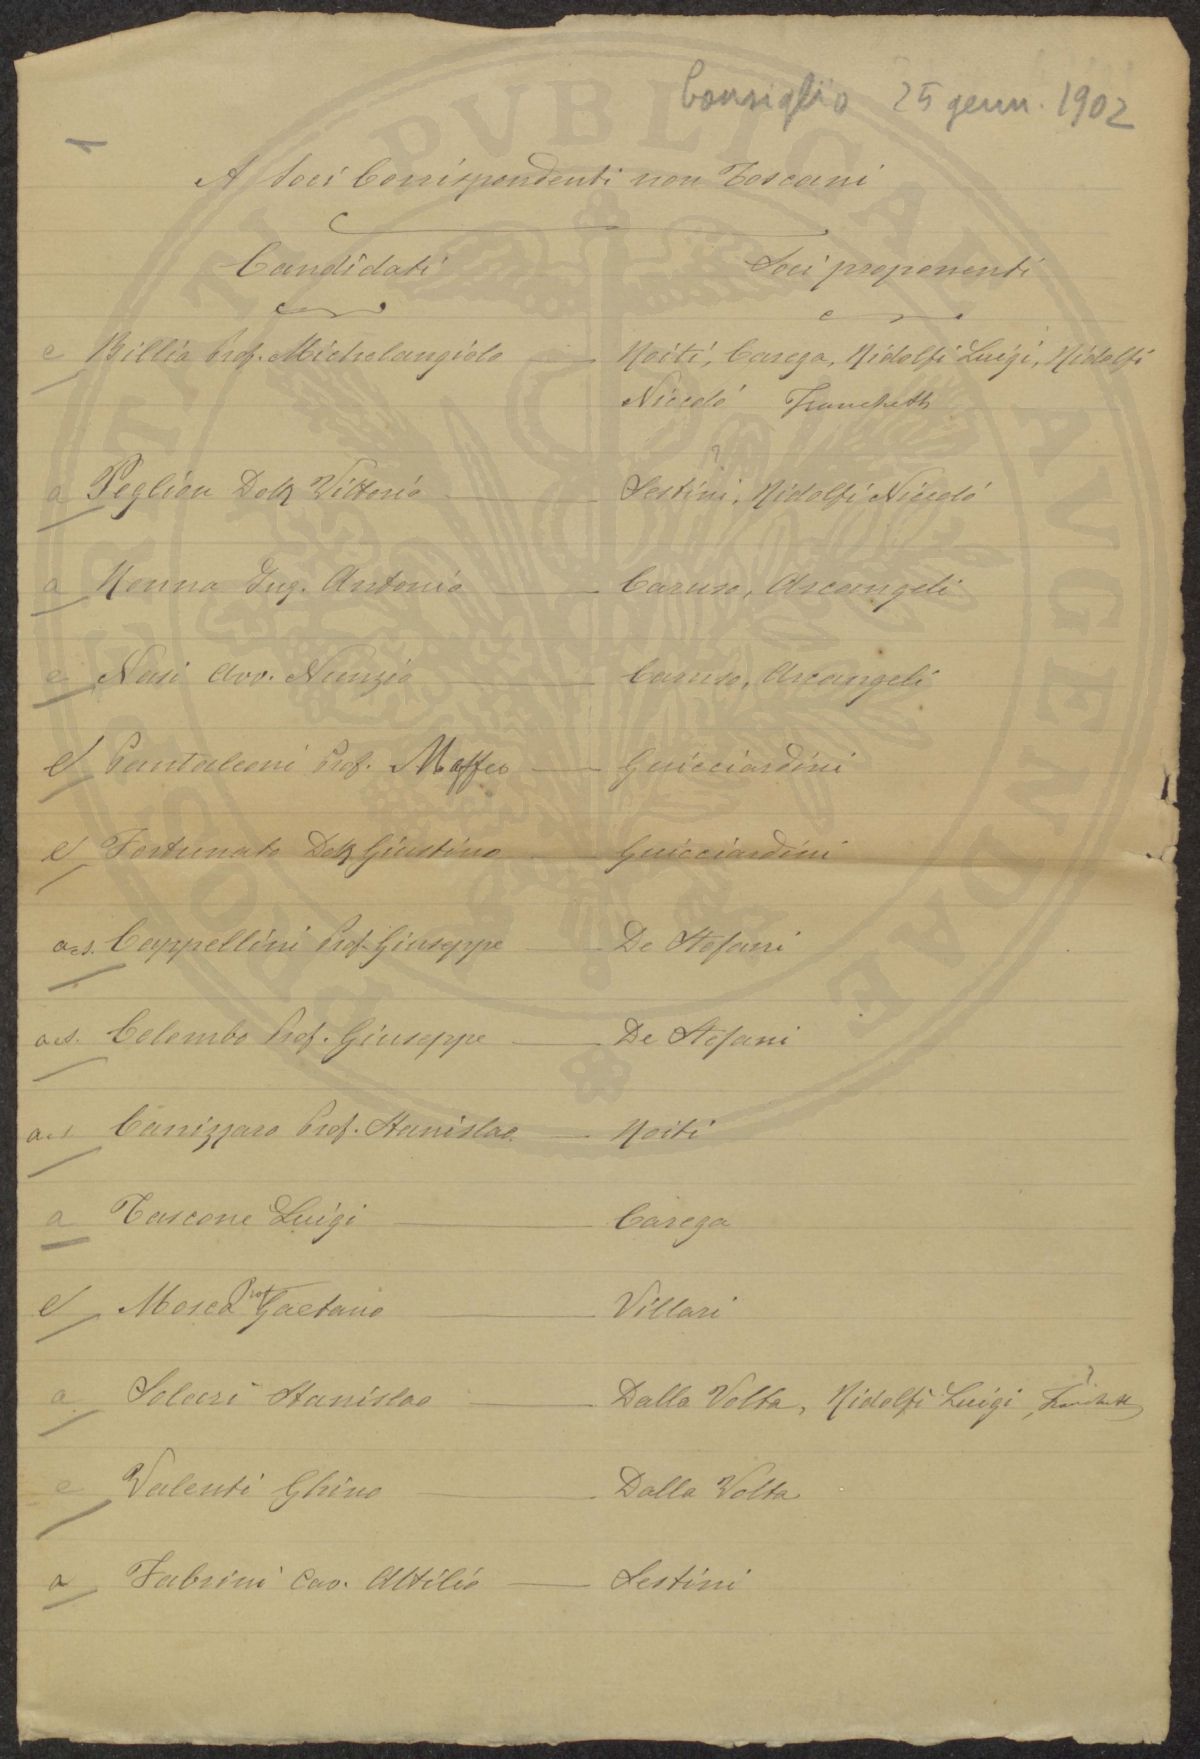 Consiglio 25 genn. 1902
A Soci Corrispondenti non Toscani
Candidati Soci proponenti
e Billia Prof. Michelangiolo Roiti, Carega, Ridolfi Luigi, Ridolfi
Niccolò Franchetti
a Peglion Dott Vittorio Sestini, ? Ridolfi Niccolò
a Monna Ing. Antonio Caruso, Arcangeli
e Nasi Avv. Nunzio Caruso, Arcangeli
e Pantaleoni Prof. Maffeo Guicciardini
e Fortunato Dott Giustino Guicciardini
a.s. Cappellini Prof. Giuseppe De Stefani
a.s. Colombo Prof. Giuseppe De Stefani
Canizzaro Prof. Stanislao Roiti
a Tascone Luigi Carega
e Mosca Prof Gaetano Villari
a Solari Stanislao Dalla Volta, Ridolfi Luigi, Franchetti ?
e Valenti Ghino Dalla Volta
a Fabrini Cav. Attilio Sestini
PVBLICAE AVGENDAE